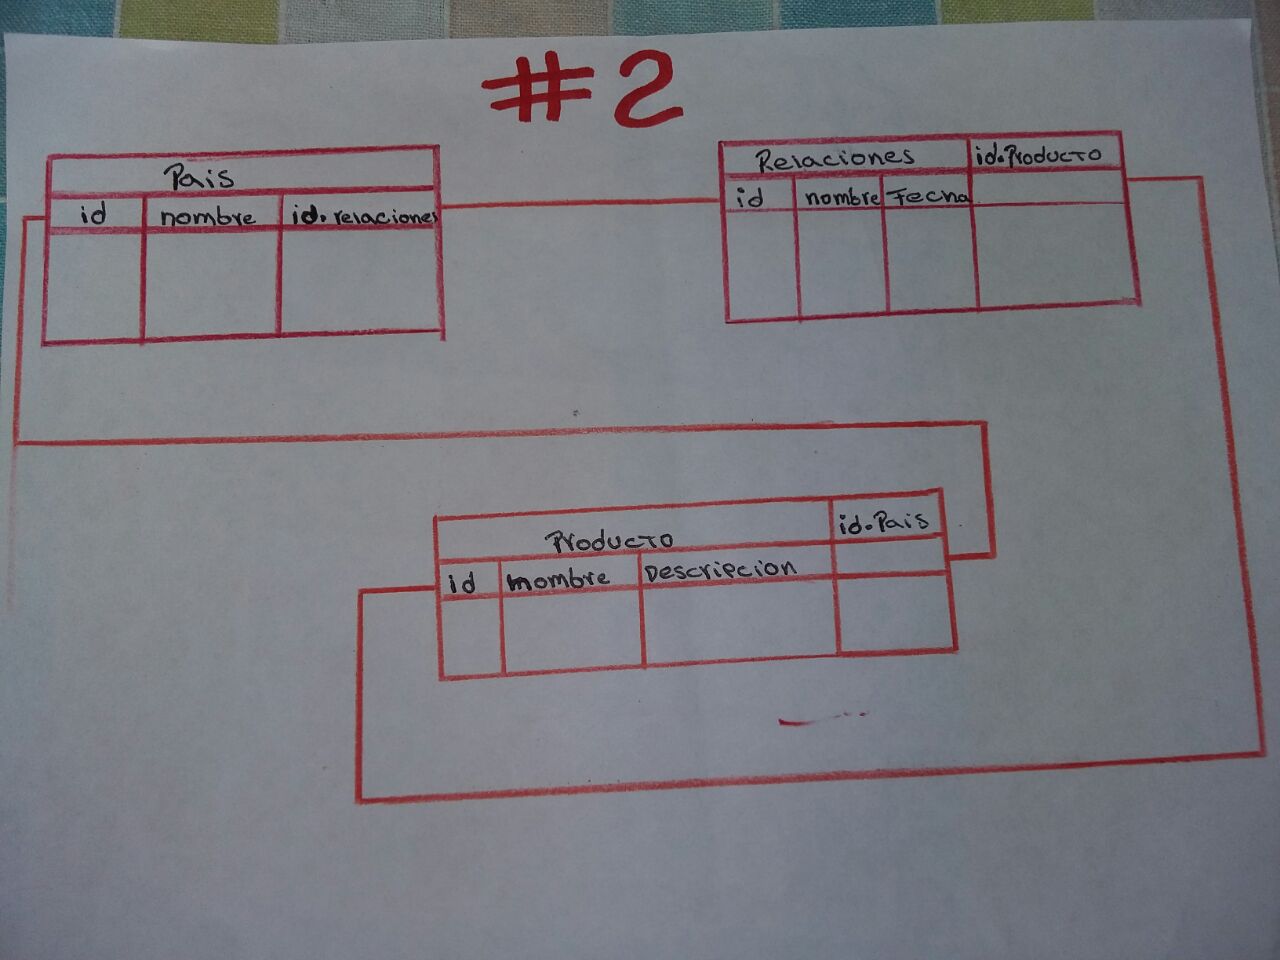 #2
Pais
id nombre id.relaciones
Relaciones id.Producto
id nombre Fecha
Producto id.Pais
id nombre Descripcion